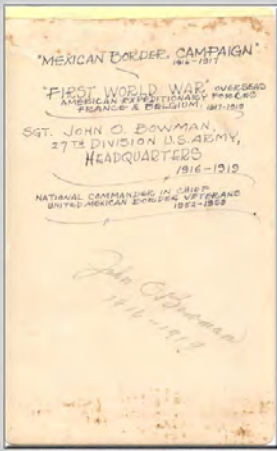 "MEXICAN BORDER CAMPAIGN"
1916-1917
"FIRST WORLD WAR", OVERSEAS
AMERICAN EXPEDITIONARY FORCES
FRANCE & BELGIUM, 1917-1919
SGT. JOHN O. BOWMAN,
27TH DIVISION U.S. ARMY,
HEADQUARTERS
1916-1919
NATIONAL COMMANDER IN CHIEF
UNITED MEXICAN BORDER VETERANS
John O. Bowman
1916-1919